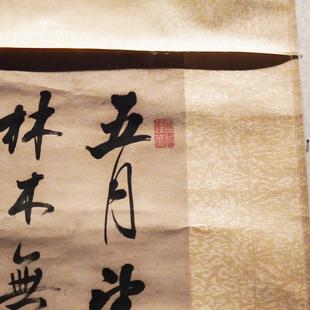 五月
林木無